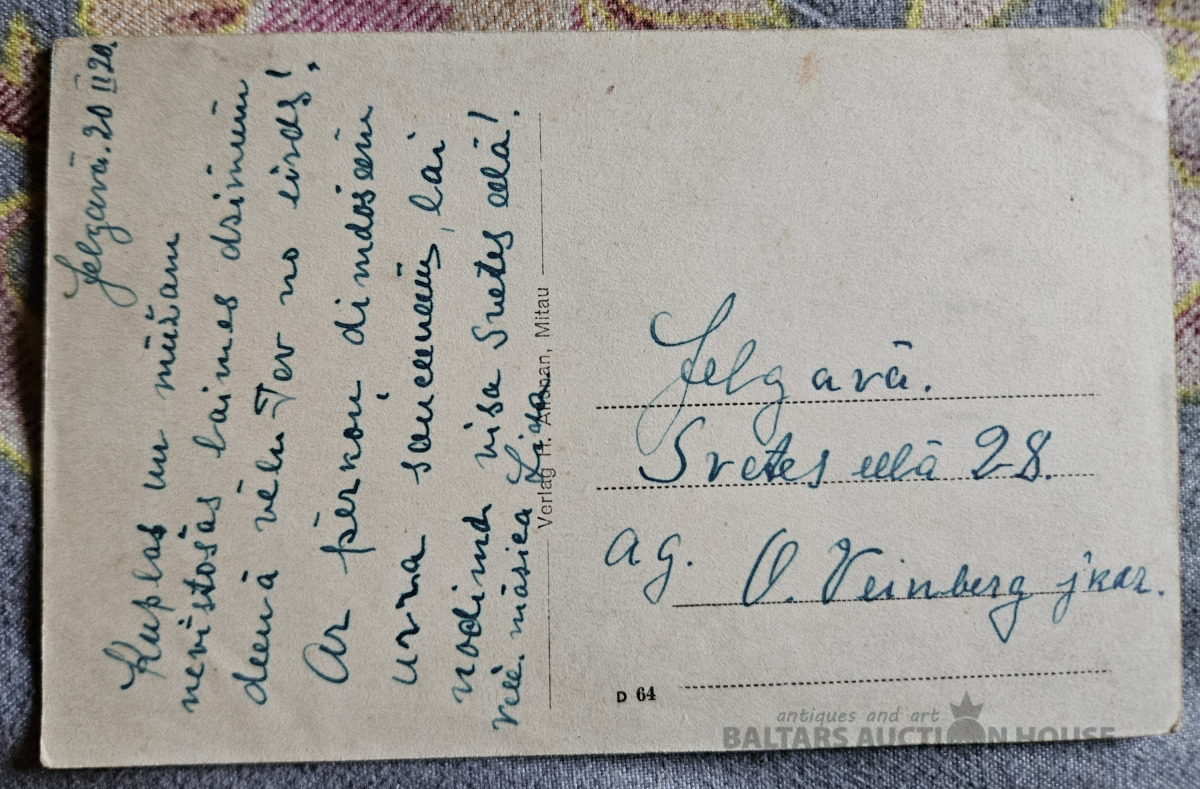 Jelgavā. 20 II 20.
Kuplas un mūžam
nevīstošas laimes dzimum
deenā vēlu Tev no sirds!
Ar pērkon dimdoseem
urra sauceeneem, lai
nodimd visa Svetes eelā!
māsiņa
Verlag H. Allunan, Mitau
Jelgavā.
Svetes eelā 28.
ag. O. Veinberg jkdz.
D 64
antiques and art
BALTARS AUCTION HOUSE